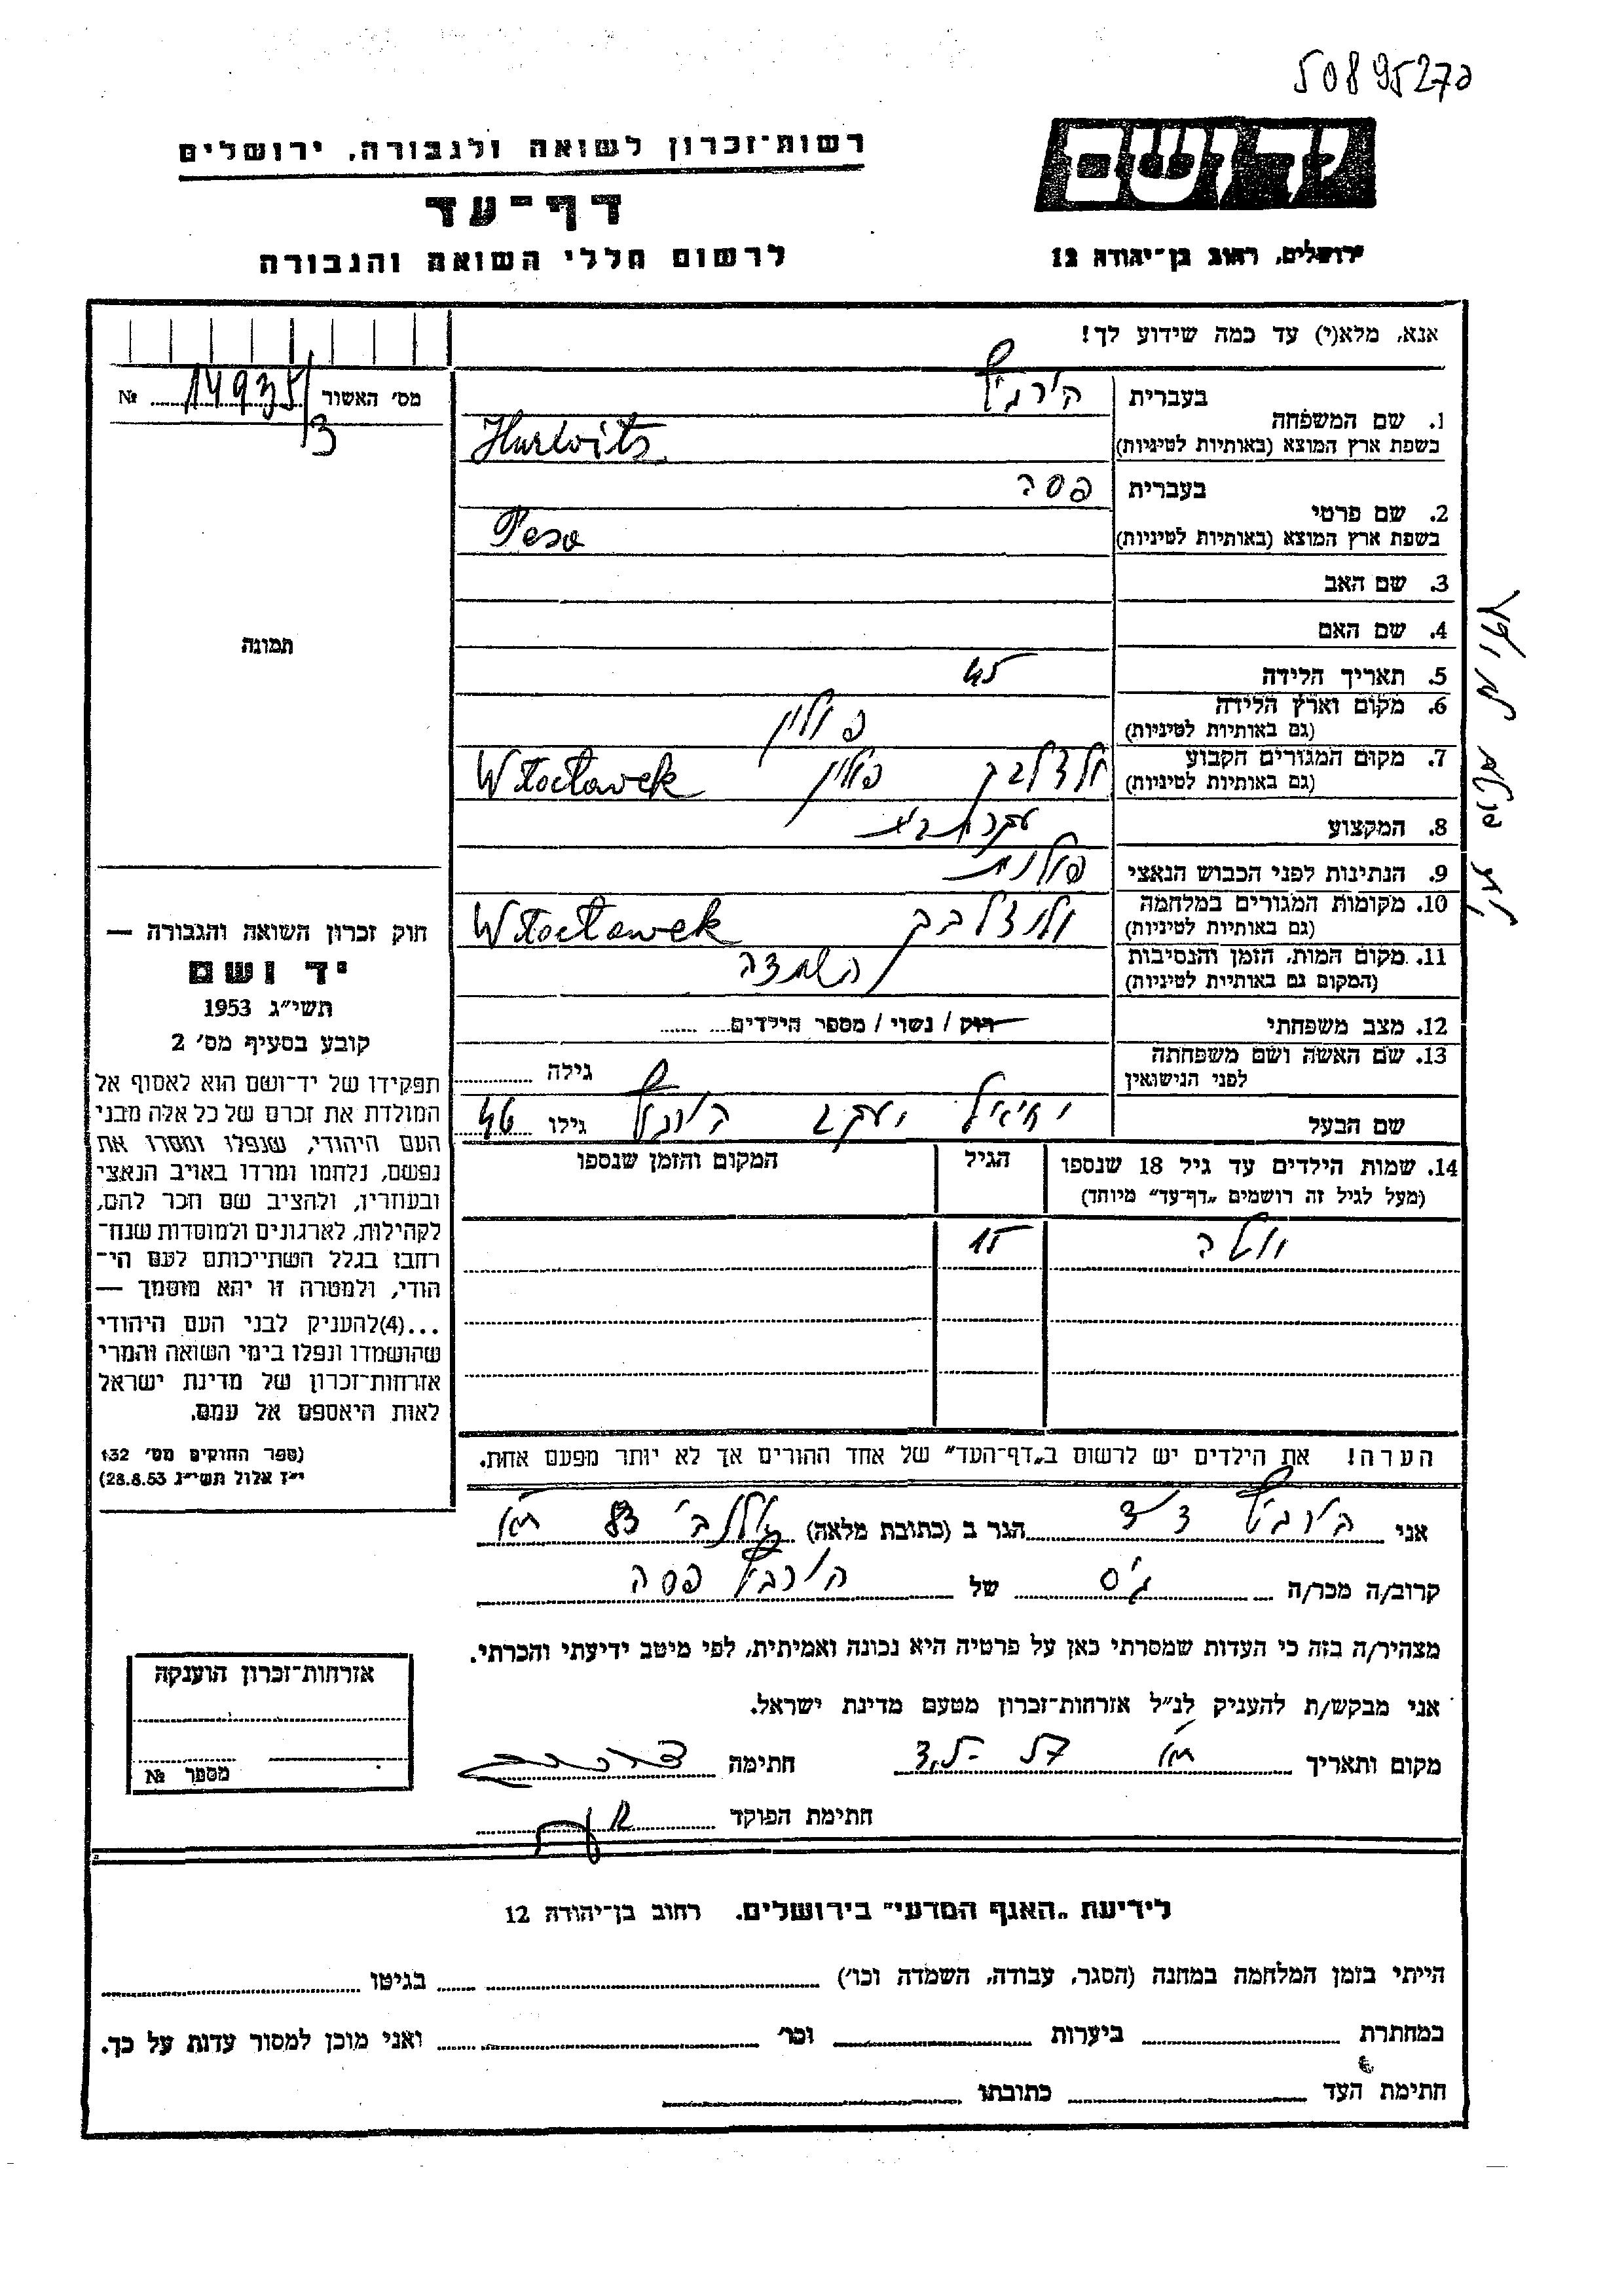 50895270
יד ושם
רשות־זכרון לשואה ולגבורה, ירושלים
דף־עד
לרשום חללי השואה והגבורה
ירושלים, רחוב בן־יהודה 12
אנא, מלא(י) עד כמה שידוע לך!
מס׳ האשור 14935/3 №
1. שם המשפחה
בעברית הורביץ
בשפת ארץ המוצא (באותיות לטיניות) Hurwits
2. שם פרטי
בעברית פסה
בשפת ארץ המוצא (באותיות לטיניות) Pesa
3. שם האב
4. שם האם
5. תאריך הלידה 45
6. מקום וארץ הלידה פולין
(גם באותיות לטיניות)
7. מקום המגורים הקבוע ולצלבק פולין Włocławek
(גם באותיות לטיניות)
8. המקצוע עקרת בית
9. הנתינות לפני הכבוש הנאצי פולנית
10. מקומות המגורים במלחמה ולוצלבק Włocławek
(גם באותיות לטיניות)
11. מקום המות, הזמן והנסיבות השמדה
(המקום גם באותיות לטיניות)
12. מצב משפחתי רווק / נשוי / מספר הילדים
13. שם האשה ושם משפחתה לפני הנישואין גילה
שם הבעל יחיאל יעקב הורביץ גילו 46
14. שמות הילדים עד גיל 18 שנספו הגיל המקום והזמן שנספו
(מעל לגיל זה רושמים „דף־עד״ מיוחד)
15
הערה! את הילדים יש לרשום ב„דף־העד״ של אחד ההורים אך לא יותר מפעם אחת.
תמונה
חוק זכרון השואה והגבורה —
יד ושם
תשי״ג 1953
קובע בסעיף מס׳ 2
תפקידו של יד־ושם הוא לאסוף אל
המולדת את זכרם של כל אלה מבני
העם היהודי, שנפלו ומסרו את
נפשם, נלחמו ומרדו באויב הנאצי
ובעוזריו, ולהציב שם וזכר להם,
לקהילות, לארגונים ולמוסדות שנח־
רבו בגלל השתייכותם לעם הי־
הודי, ולמטרה זו יהא מוסמך —
...(4)להעניק לבני העם היהודי
שהושמדו ונפלו בימי השואה והמרי
אזרחות־זכרון של מדינת ישראל
לאות היאספם אל עמם.
(ספר החוקים מס׳ 132
י״ז אלול תשי״ג 28.8.53)
אני הורביץ דוד הגר ב (כתובת מלאה) אלנבי 83 ת״א
קרוב/ה מכר/ה גיס של הורביץ פסה
מצהיר/ה בזה כי העדות שמסרתי כאן על פרטיה היא נכונה ואמיתית, לפי מיטב ידיעתי והכרתי.
אני מבקש/ת להעניק לנ״ל אזרחות־זכרון מטעם מדינת ישראל.
מקום ותאריך ת״א חתימה
חתימת הפוקד
אזרחות־זכרון הוענקה
מספר №
לידיעת „האגף המדעי״ בירושלים, רחוב בן־יהודה 12
הייתי בזמן המלחמה במחנה (הסגר, עבודה, השמדה וכו׳) בגיטו
במחתרת ביערות וכו׳ ואני מוכן למסור עדות על כך.
חתימת העד כתובתו